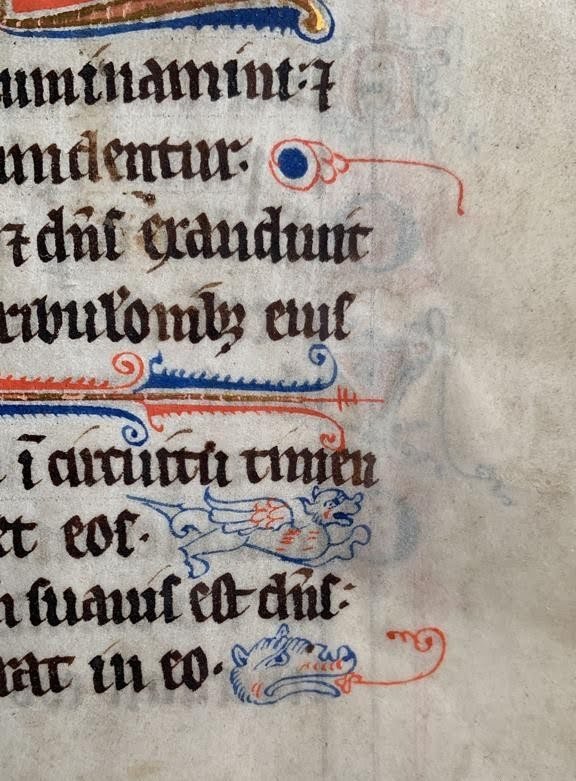 uminamini: ⁊
undentur.
⁊ dñſ exaudiuit
ribulōnibꝫ eiuſ
ī circuitu timen
et eoſ.
ſuauiſ eſt dñſ:
rat in eo.